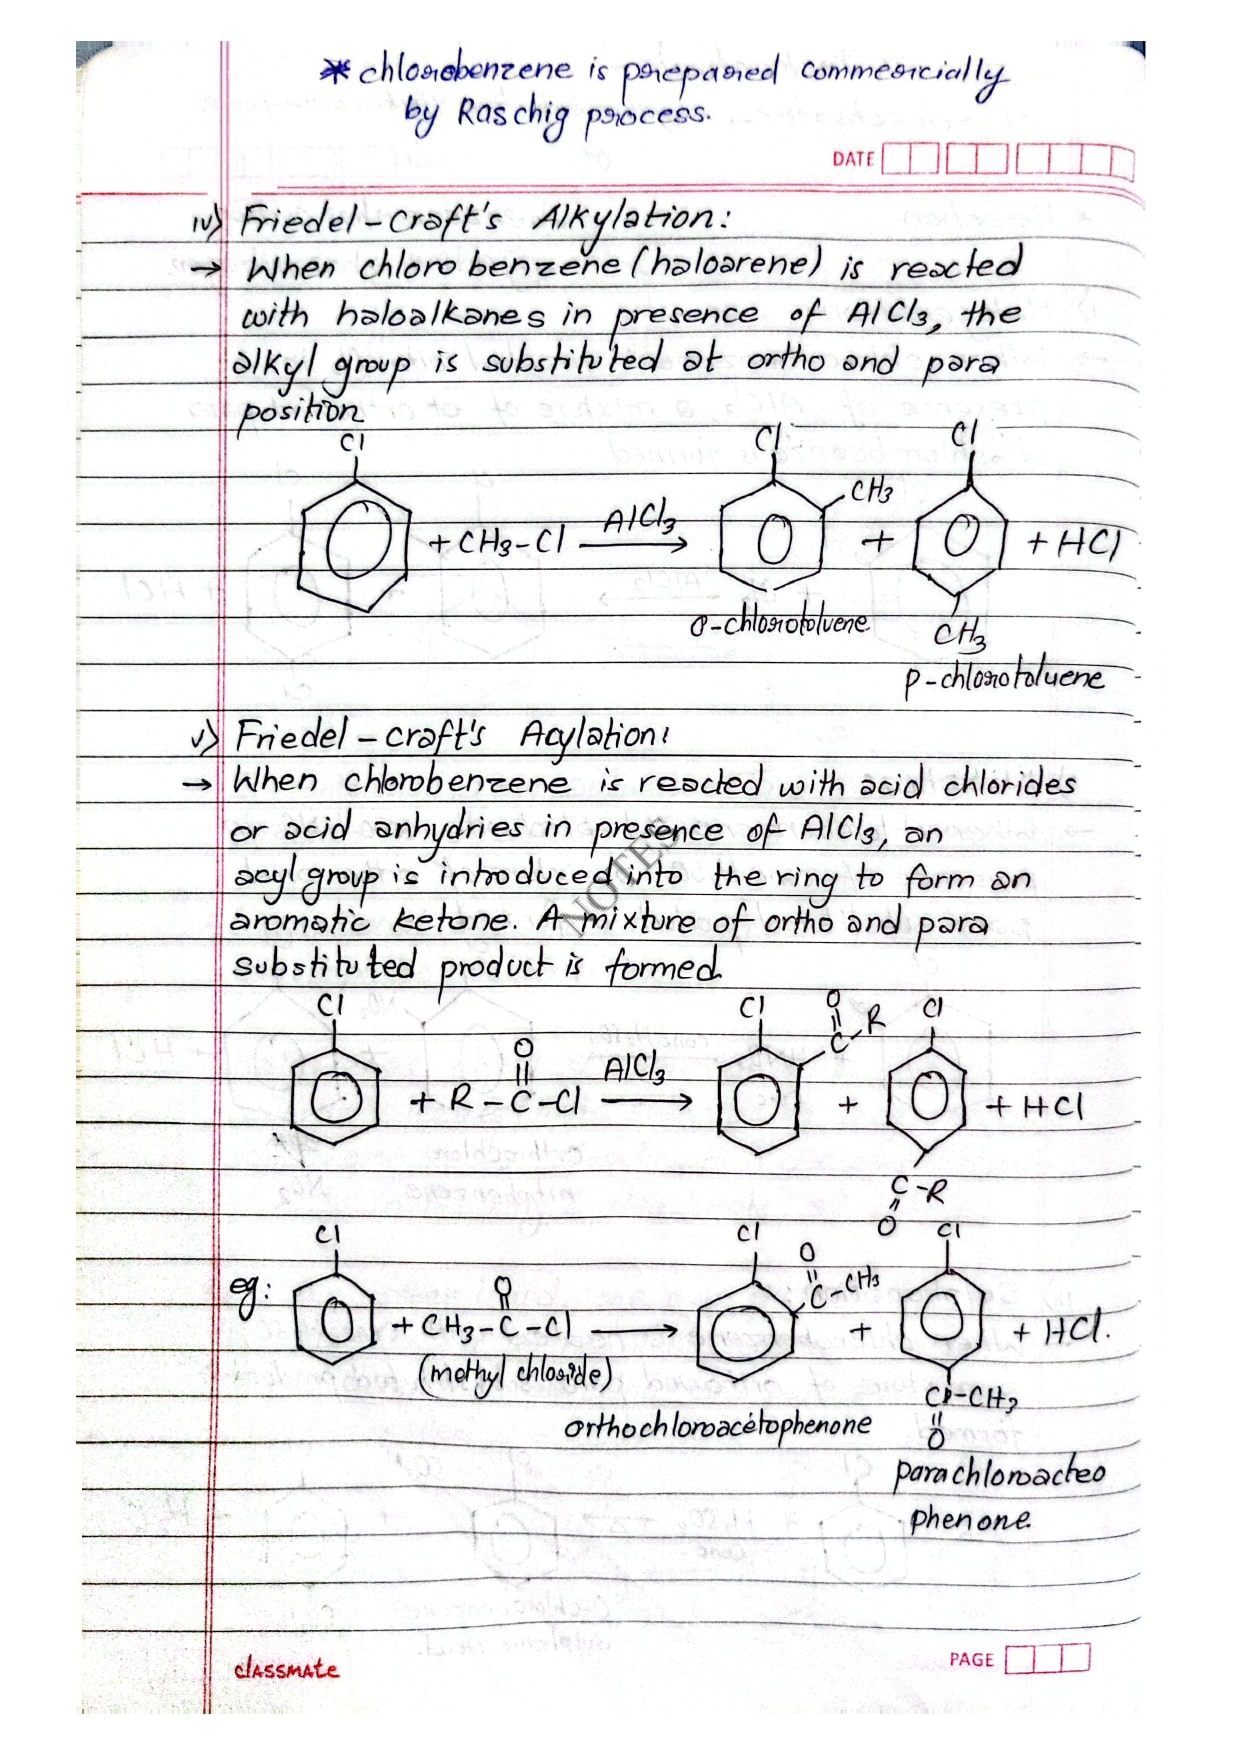 * chlorobenzene is prepared commercially
by Raschig process.
DATE
iv) Friedel-craft's Alkylation:
→ When chlorobenzene (haloarene) is reacted
with haloalkanes in presence of AlCl3, the
alkyl group is substituted at ortho and para
position
Cl Cl Cl
CH3
+ CH3-Cl AlCl3 → + + HCl
o-chlorotoluene CH3
p-chlorotoluene
v) Friedel-craft's Acylation:
→ When chlorobenzene is reacted with acid chlorides
or acid anhydries in presence of AlCl3, an
acyl group is introduced into the ring to form an
aromatic ketone. A mixture of ortho and para
substituted product is formed
NOTES
Cl Cl O Cl
C-R
O
+ R-C-Cl AlCl3 → + + HCl
C-R
O
Cl Cl O Cl
C-CH3
O
eg: + CH3-C-Cl → + + HCl.
(methyl chloride)
C-CH3
orthochloroacetophenone O
parachloroacteo
phenone
classmate
PAGE